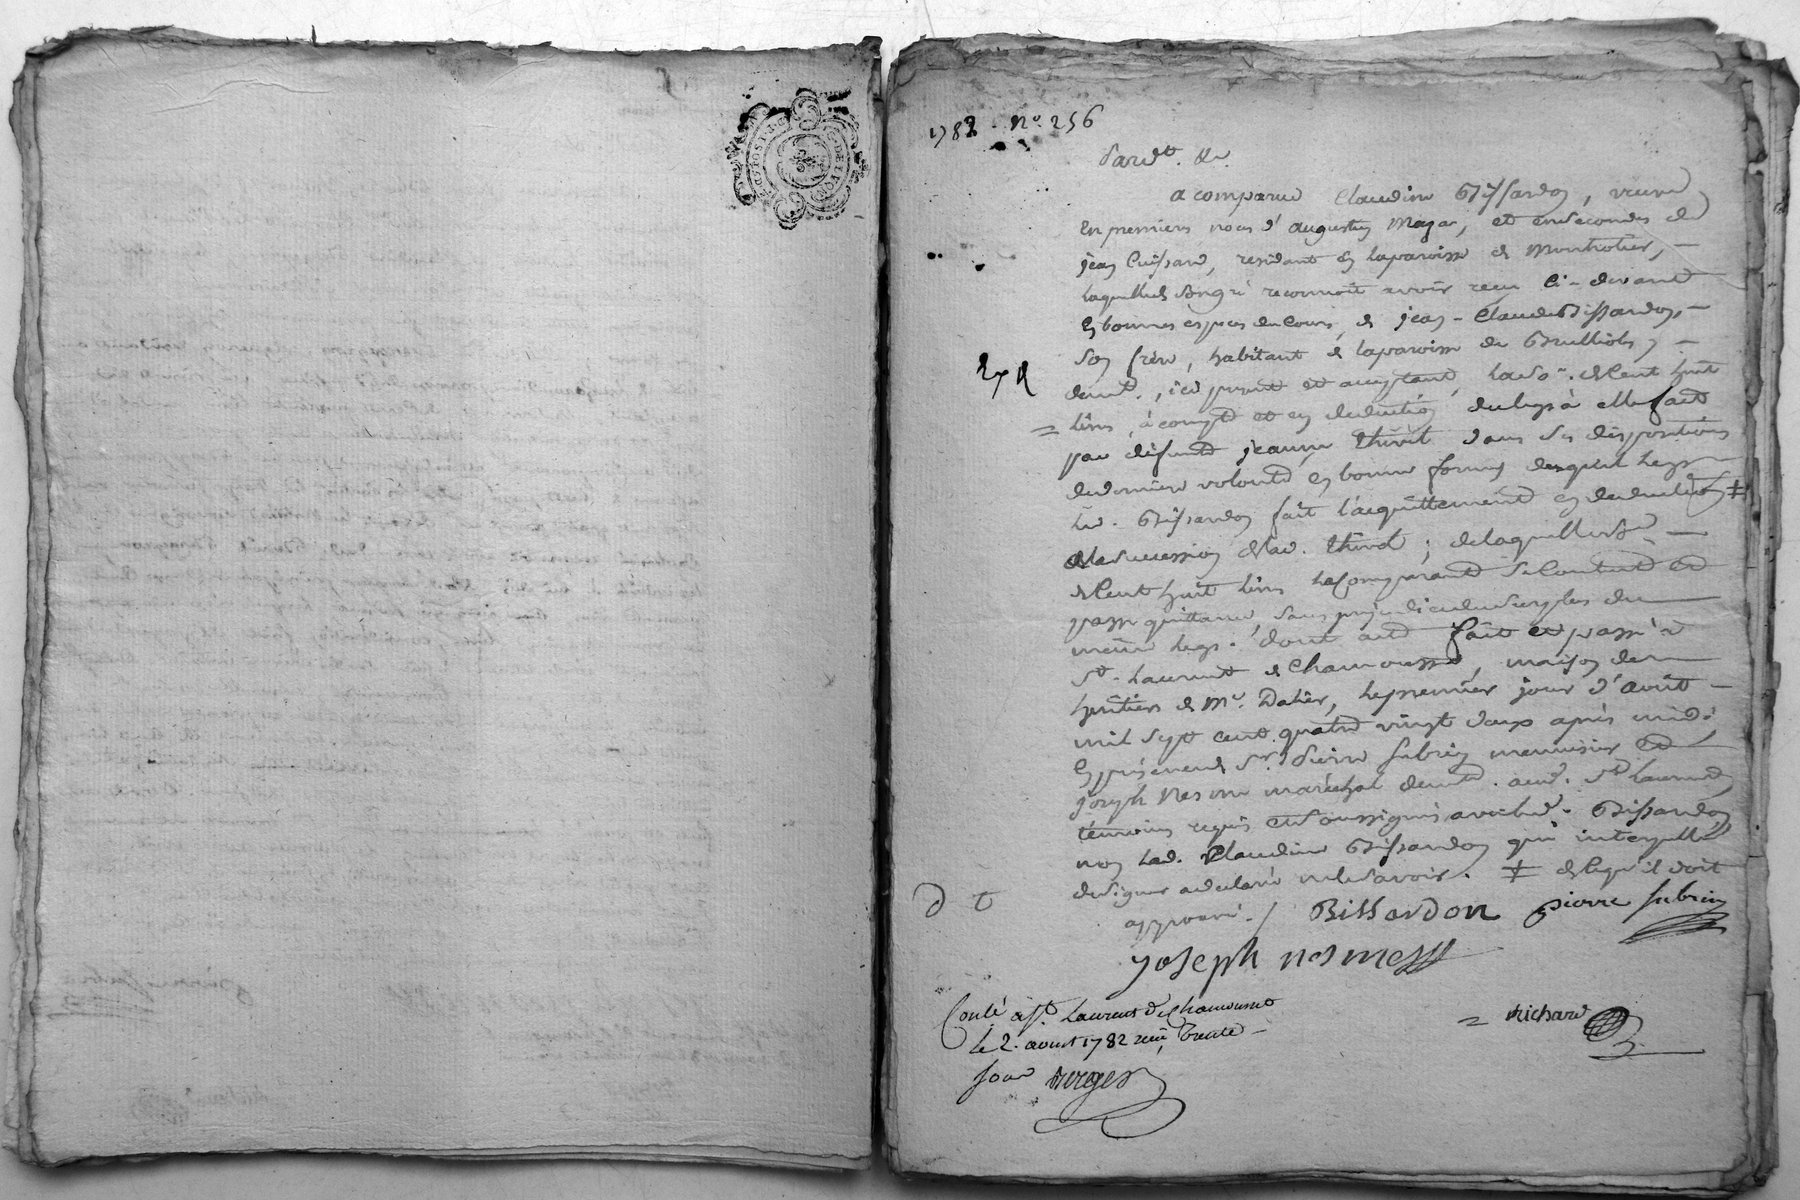 1782 nº. 256
Pardt. &c.
a comparue Claudine Bissardon, veuve
en premieres noces d'augustin Mazar, et en secondes de
jean Cuissard, residant en la paroisse de Montrotier, —
laquelle de son gré reconnoit avoir reçu ci-devant
en bonnes especes de cours, de jean-Claude Bissardon, —
son frere, habitant de la paroisse de Brulliole, —
Exp
demt., ici present et acceptant, la so.e de Cent huit
livres, à compte et en deduction du legs à elle fait
par défunte jeanne thivel dans ses dispositions
de derniere volonté en bonne forme, duquel legs
led. Bissardon fait l'acquittement en deduction ǂ
de la succession de lad. thivel; de laquelle so.e —
de Cent huit livres la Comparante se Contente et
passe quittance, sans prejudice du surplus du
meme legs. dont acte fait et passé à
St. Laurent de Chamousset, maison des
heritiers de Mr. Dalier, le premier jour d'août —
mil sept cent quatre vingt deux après midi,
en présence de Sr. Pierre fabrin menuisier et
joseph Nesme maréchal demt. aud. St. Laurent,
témoins requis et soussignés avec led. Bissardon
non lad. Claudine Bissardon qui interpellée
de signer a declaré ne le savoir. ǂ de ce qu'il doit
approuvé. / Bissardon pierre fabrin
joseph nesme
Conlé à St. Laurent de Chamousset
le 2. aoust 1782 reçu trente —
sous
richard